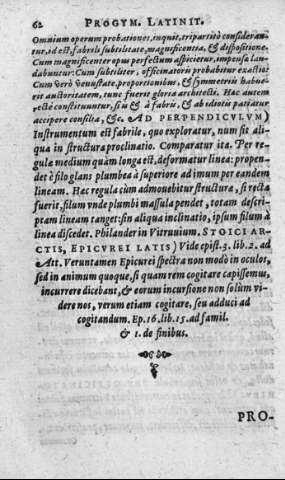 62 PROGYM. LATINIT.
Omnium operum probationes, inquit, tripartitò consideran-
tur, id est, fabrili subtilitate, magnificentia, & dispositione.
Cum magnificenter opus perfectum aspicietur, impensæ lau-
dabuntur: Cum subtiliter, officinatoris probabitur exactio:
Cum verò venuste, proportionibus, & symmetriis habue-
rit auctoritatem, tunc fuerit gloria architecti. Hac autem
rectè constituuntur, si is & à fabris, & ab idiotis patiatur
accipere consilia, &c. AD PERPENDICVLVM)
Instrumentum est fabrile, quo exploratur, num sit ali-
qua in structura proclinatio. Comparatur ita. Per re-
gulæ medium quàm longa est, deformatur linea: propen-
det è filo glans plumbea à superiore ad imum per eandem
lineam. Hac regula cùm admouebitur structura, si recta
fuerit, filum vnde plumbi massula pendet, totam descri-
ptam lineam tanget: sin aliqua inclinatio, ipsum filum à
linea discedet. Philander in Vitruuium. STOICI AR-
CTIS, EPICVREI LATIS) Vide epist. 3. lib. 2. ad
Att. Veruntamen Epicurei spectra non modò in oculos,
sed in animum quoque, si quam rem cogitare capissemus,
incurrere dicebant, & eorum incursione non solùm vi-
dere nos, verum etiam cogitare, seu adduci ad
cogitandum. Ep. 16. lib. 15. ad famil.
& 1. de finibus.
PRO-